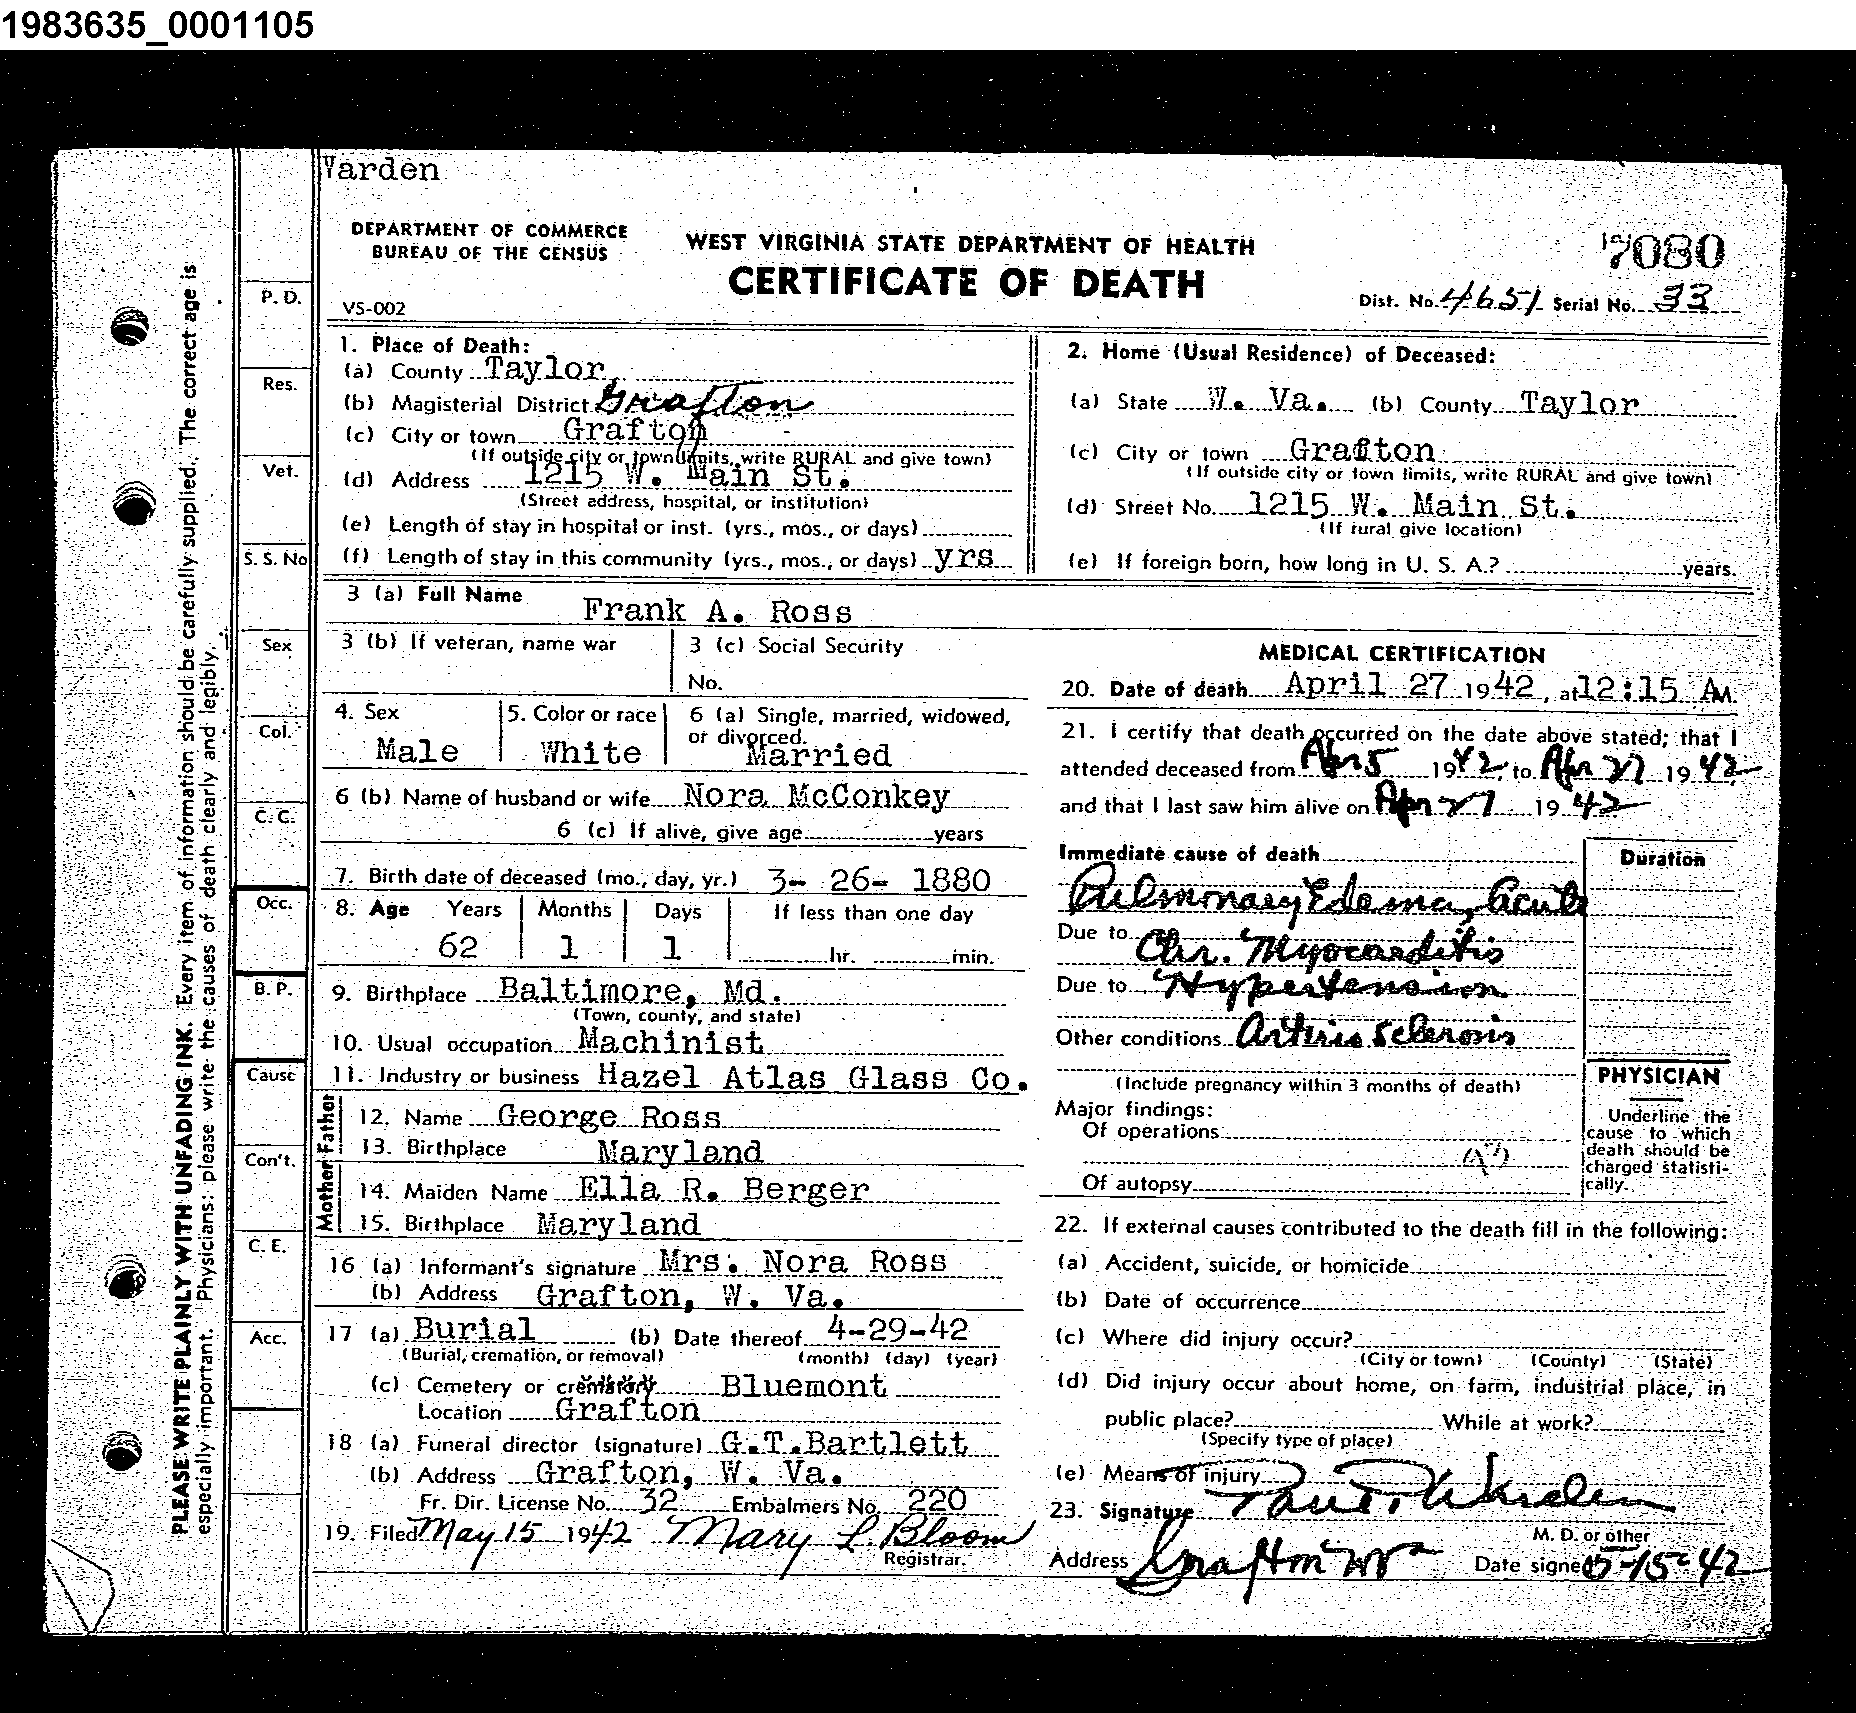 1983635_0001105
Warden
DEPARTMENT OF COMMERCE
BUREAU OF THE CENSUS
VS-002
WEST VIRGINIA STATE DEPARTMENT OF HEALTH
CERTIFICATE OF DEATH
7080
Dist. No. 4651 Serial No. 33
PLEASE WRITE PLAINLY WITH UNFADING INK. Every item of information should be carefully supplied. The correct age is
especially important. Physicians: please write the causes of death clearly and legibly.
P. D.
Res.
Vet.
S. S. No
Sex
Col.
C. C.
Occ.
B. P.
Cause
Con't.
C. E.
Acc.
1. Place of Death:
(a) County Taylor
(b) Magisterial District Grafton
(c) City or town Grafton
(If outside city or town limits, write RURAL and give town)
(d) Address 1215 W. Main St.
(Street address, hospital, or institution)
(e) Length of stay in hospital or inst. (yrs., mos., or days)
(f) Length of stay in this community (yrs., mos., or days) yrs
2. Home (Usual Residence) of Deceased:
(a) State W. Va. (b) County Taylor
(c) City or town Grafton
(If outside city or town limits, write RURAL and give town)
(d) Street No. 1215 W. Main St.
(If rural give location)
(e) If foreign born, how long in U. S. A.? years.
3 (a) Full Name Frank A. Ross
3 (b) If veteran, name war
3 (c) Social Security
No.
4. Sex
Male
5. Color or race
White
6 (a) Single, married, widowed,
or divorced.
Married
6 (b) Name of husband or wife Nora McConkey
6 (c) If alive, give age years
7. Birth date of deceased (mo., day, yr.) 3- 26- 1880
8. Age Years Months Days If less than one day
62 1 1 hr. min.
9. Birthplace Baltimore, Md.
(Town, county, and state)
10. Usual occupation Machinist
11. Industry or business Hazel Atlas Glass Co.
Father
12. Name George Ross
13. Birthplace Maryland
Mother
14. Maiden Name Ella R. Berger
15. Birthplace Maryland
16 (a) Informant's signature Mrs. Nora Ross
(b) Address Grafton, W. Va.
17 (a) Burial (b) Date thereof 4-29-42
(Burial, cremation, or removal) (month) (day) (year)
(c) Cemetery or crematory Bluemont
Location Grafton
18 (a) Funeral director (signature) G.T.Bartlett
(b) Address Grafton, W. Va.
Fr. Dir. License No. 32 Embalmers No. 220
19. Filed May 15 1942 Mary L. Bloom
Registrar.
MEDICAL CERTIFICATION
20. Date of death April 27 1942, at 12:15 AM.
21. I certify that death occurred on the date above stated; that I
attended deceased from Apr 5 1942, to Apr 27 1942
and that I last saw him alive on Apr 27 1942
Immediate cause of death
Duration
Pulmonary Edema, acute
Due to Chr. Myocarditis
Due to Hypertension
Other conditions Arterio Sclerosis
(Include pregnancy within 3 months of death)
Major findings:
Of operations
Of autopsy
PHYSICIAN
Underline the
cause to which
death should be
charged statisti-
cally.
22. If external causes contributed to the death fill in the following:
(a) Accident, suicide, or homicide
(b) Date of occurrence
(c) Where did injury occur?
(City or town) (County) (State)
(d) Did injury occur about home, on farm, industrial place, in
public place? While at work?
(Specify type of place)
(e) Means of injury
23. Signature Paul P. Warden
M. D. or other
Address Grafton W Va Date signed 5-15-42